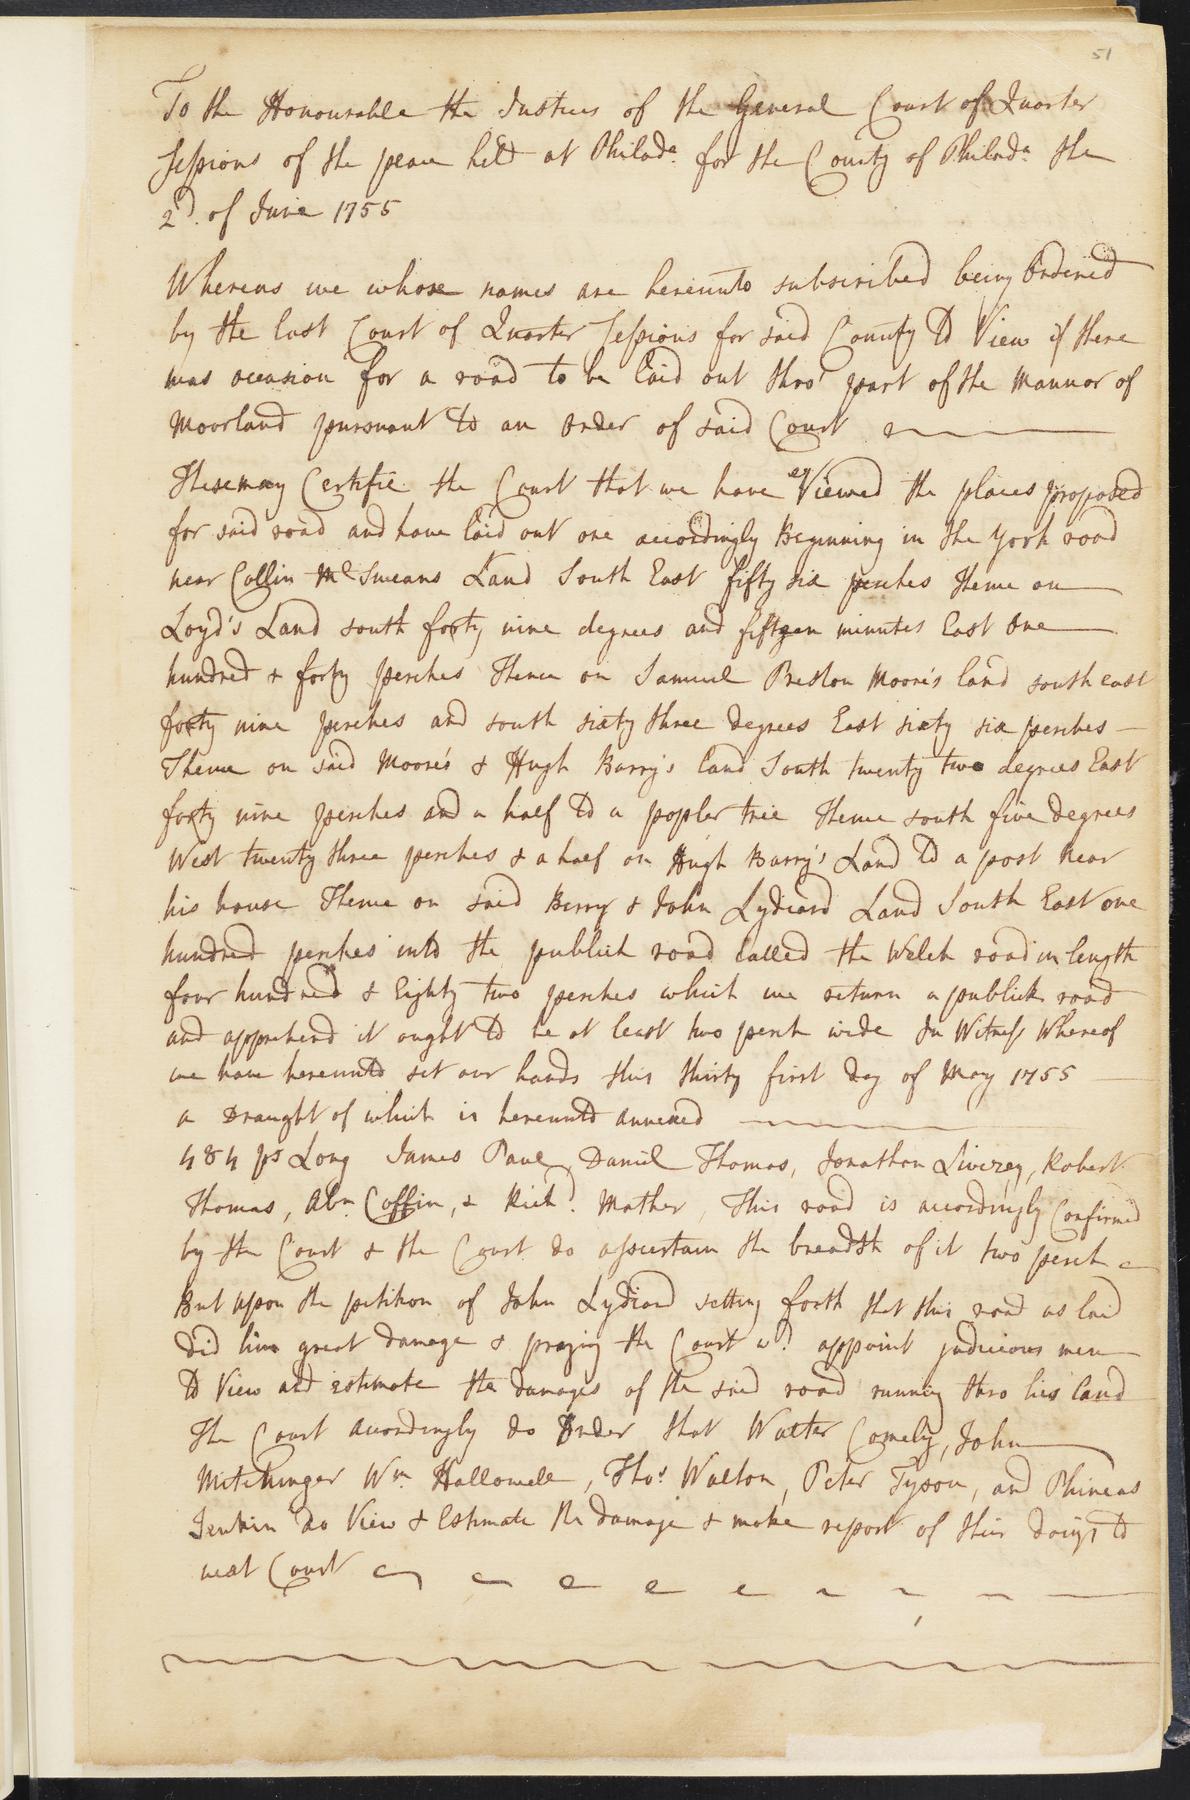 51
To the Honourable the Justices of the General Court of Quarter
Sessions of the peace held at Philada. for the County of Philada. the
2d. of June 1755
Whereas we whose names are hereunto subscribed being Ordered
by the last Court of Quarter Sessions for said County to View if there
was occasion for a road to be laid out thro' part of the Mannor of
Moorland pursuant to an order of said Court
These may Certifie the Court that we have Viewed the places proposed
for said road and have laid out one accordingly Beginning in the York road
near Collin McSweans Land South East fifty six perches Thence on
Loyd's Land south forty nine degrees and fifteen minutes East one
hundred & forty perches Thence on Samuel Preston Moore's land south east
forty nine perches and south sixty three degrees East sixty six perches
Thence on said Moore's & Hugh Barry's land South twenty two degrees East
forty nine perches and a half to a popler tree Thence south five degrees
West twenty three perches & a half on Hugh Barry's Land to a post near
his house Thence on said Berry & John Lydiard Land South East one
hundred perches into the publick road called the Welch road in length
four hundred & Eighty two perches which we return a publick road
and apprehend it ought to be at least two perch wide In Witness Whereof
we have hereunto set our hands this thirty first day of May 1755
a Draught of which is hereunto annexed
484 ps Long James Paul, Daniel Thomas, Jonathan Livezey, Robert
Thomas, Abm Coffin, & Richd. Mather, This road is accordingly Confirmed
by the Court & the Court do assertain the breadth of it two perch
But upon the petition of John Lydiard setting forth that this road as laid
did him great damage & praying the Court wd. appoint judicious men
to View and estimate the damages of the said road running thro his land
The Court accordingly do Order that Walter Comely, John
Mitchinger Wm. Hallowell, Thos. Walton, Peter Tyson, and Phineas
Jenkin do View & Estimate the damage & make report of their doings to
next Court